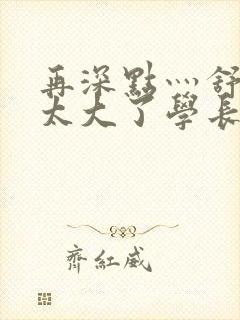 再深點灬舒
太大了學長
齊紅威